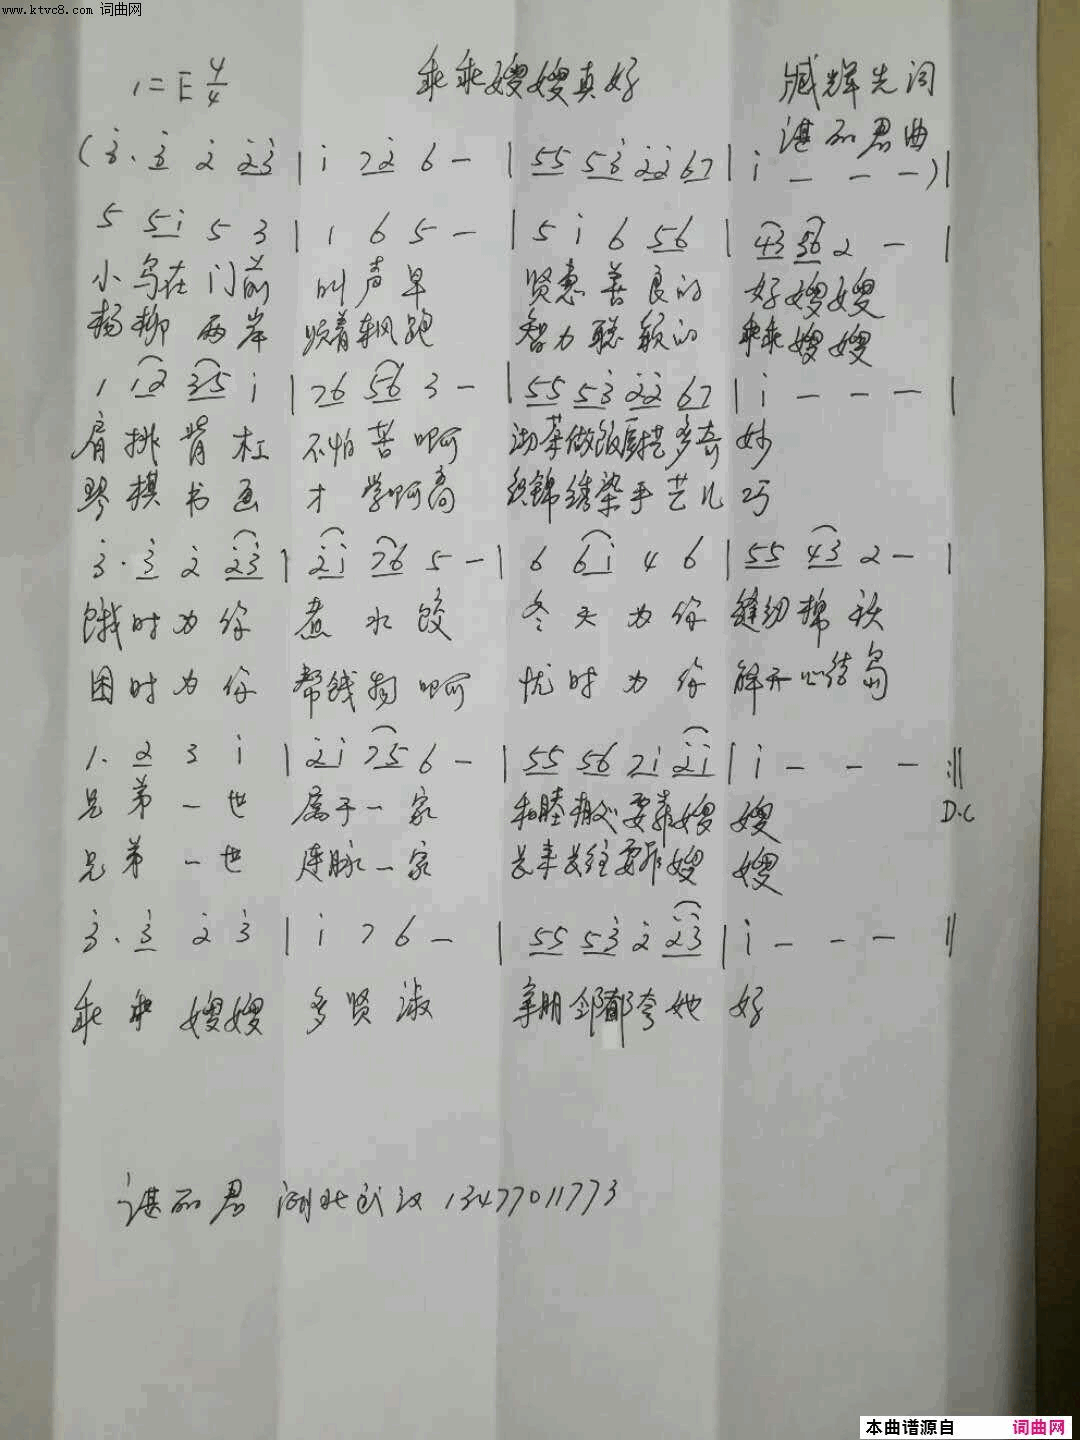 www.ktvc8.com 词曲网
1=E 4/4 乖乖嫂嫂真好 臧辉先词
谌丽君曲
(3̇· 3̇ 2̇ 2̇3̇ | 1̇ 72̇ 6 — | 55 53̇ 2̇2̇ 67 | 1̇ — — —)|
5 51̇ 5 3 | 1 6 5 — | 5 1̇ 6 56 | 43 36 2 — |
小鸟在门前 叫声早 贤惠善良的 好嫂嫂
杨柳两岸 顺着轨跑 智力聪颖的 乖乖嫂嫂
1 12 35 1̇ | 76 56 3 — | 55 53̇ 2̇2̇ 67 | 1̇ — — — |
肩挑背杠 不怕苦啊 沏茶做饭厨艺多奇 妙
琴棋书画 才学啊高 织锦绣染手艺儿 巧
3̇· 3̇ 2̇ 2̇3̇ | 2̇1̇ 76 5 — | 6 61̇ 4 6 | 55 43 2 — |
饿时为你 煮水饺 冬天为你 缝纫棉袄
困时为你 帮钱物啊 忧时为你 解开心结
1· 2 3 1̇ | 2̇1̇ 75 6 — | 55 56 71̇ 2̇1̇ | 1̇ — — — :‖
兄弟一世 属于一家 和睦 要靠嫂 嫂 D.C
兄弟一世 连脉一家 长来长往要靠嫂 嫂
3̇· 3̇ 2̇ 3̇ | 1̇ 7 6 — | 55 53 2̇ 2̇3̇ | 1̇ — — — ‖
乖乖嫂嫂 多贤淑 亲朋邻都夸她 好
谌丽君 湖北武汉 13477011773
本曲谱源自 词曲网